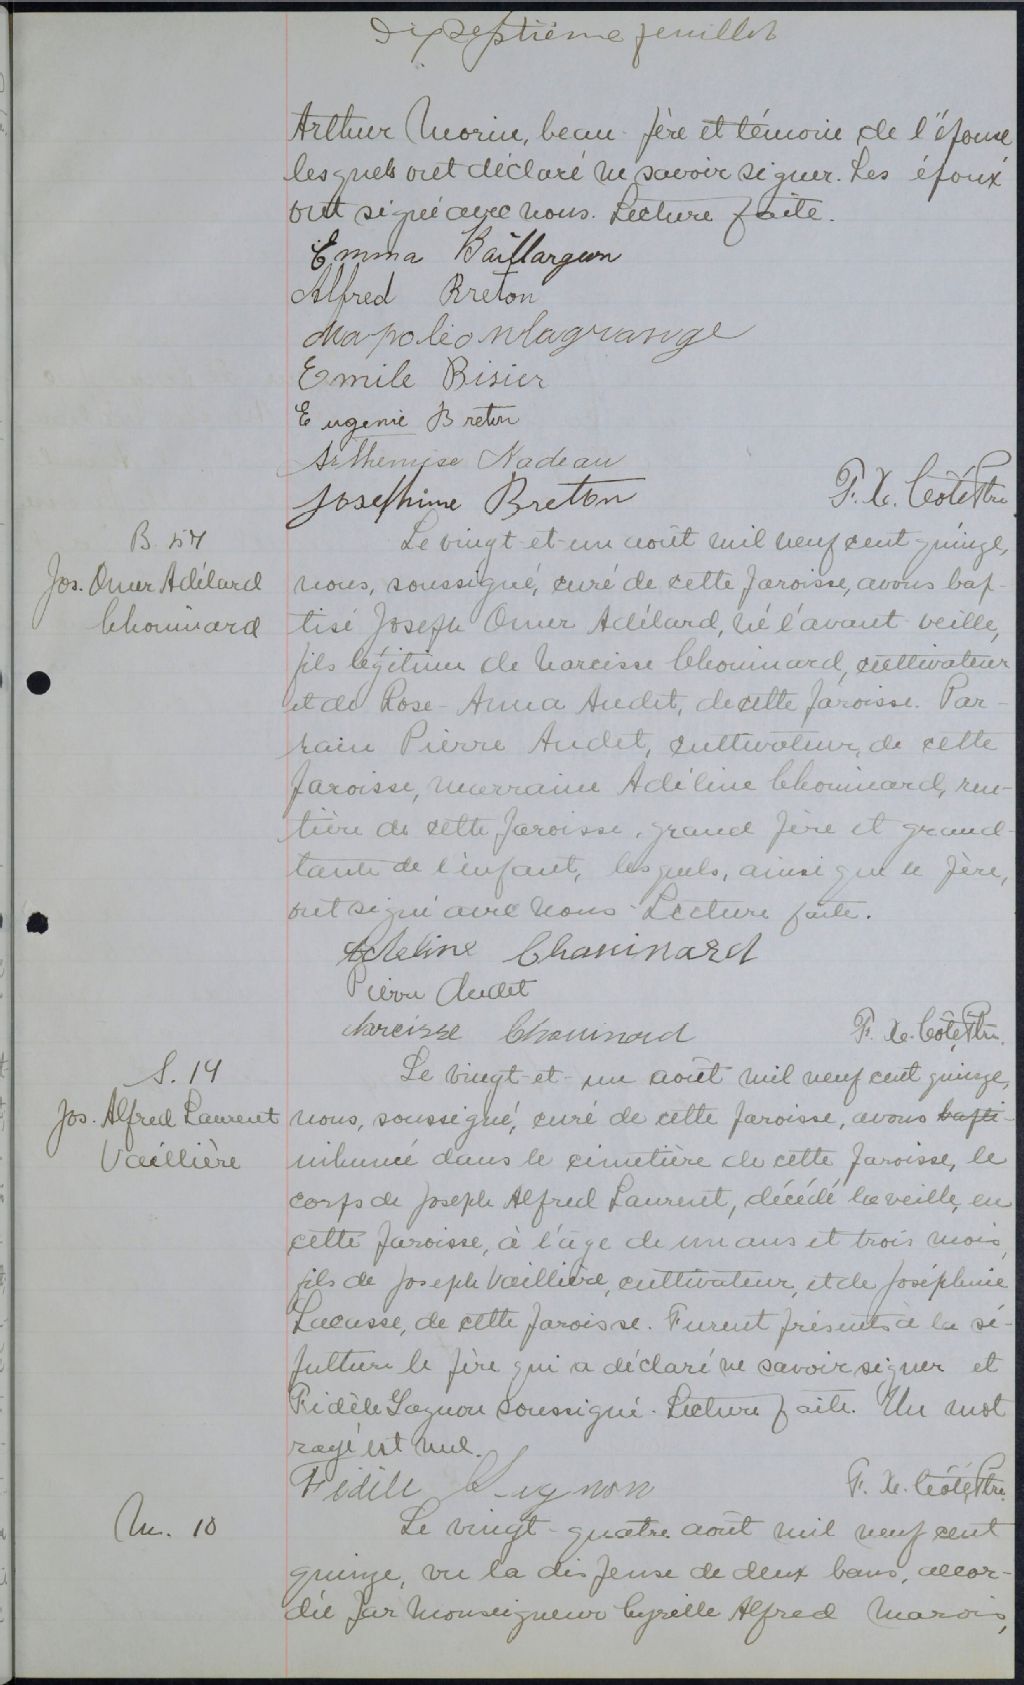 Dix septième feuillet
Arthur Morin, beau-père et témoin de l'épouse
lesquels ont déclaré ne savoir signer. Les époux
ont signé avec nous. Lecture faite.
Emma Baillargeon
Alfred Breton
Napoléon Lagrange
Emile Bisier
Eugenie Breton
Arthemise Nadeau
Josephine Breton F. X. Côté Ptre
B. 57
Jos. Omer Adélard
Chouinard
Le vingt-et-un août mil neuf cent quinze,
nous, soussigné, curé de cette paroisse, avons bap-
tisé Joseph Omer Adélard, né l'avant veille,
fils légitime de Narcisse Chouinard, cultivateur
et de Rose-Anna Audet, de cette paroisse. Par-
rain Pierre Audet, cultivateur, de cette
paroisse, marraine Adéline Chouinard, ren-
tière de cette paroisse, grand père et grand-
tante de l'enfant, lesquels, ainsi que le père,
ont signé avec nous. Lecture faite.
Adeline Chouinard
Pierre Audet
Narcisse Chouinard F. X. Côté, Ptre.
S. 14
Jos. Alfred Laurent
Vaillière
Le vingt-et-un août mil neuf cent quinze,
nous, soussigné, curé de cette paroisse, avons bapti-
inhumé dans le cimetière de cette paroisse, le
corps de Joseph Alfred Laurent, décédé la veille, en
cette paroisse, à l'âge de un ans et trois mois,
fils de Joseph Vaillière, cultivateur, et de Joséphine
Lacasse, de cette paroisse. Furent présents à la sé-
pulture le père qui a déclaré ne savoir signer et
Fidèle Gagnon soussigné. Lecture faite. Un mot
rayé est nul.
Fidèle Gagnon F. X. Côté, Ptre.
M. 10
Le vingt-quatre août mil neuf cent
quinze, vu la dispense de deux bans, accor-
dée par Monseigneur Cyrille Alfred Marois,